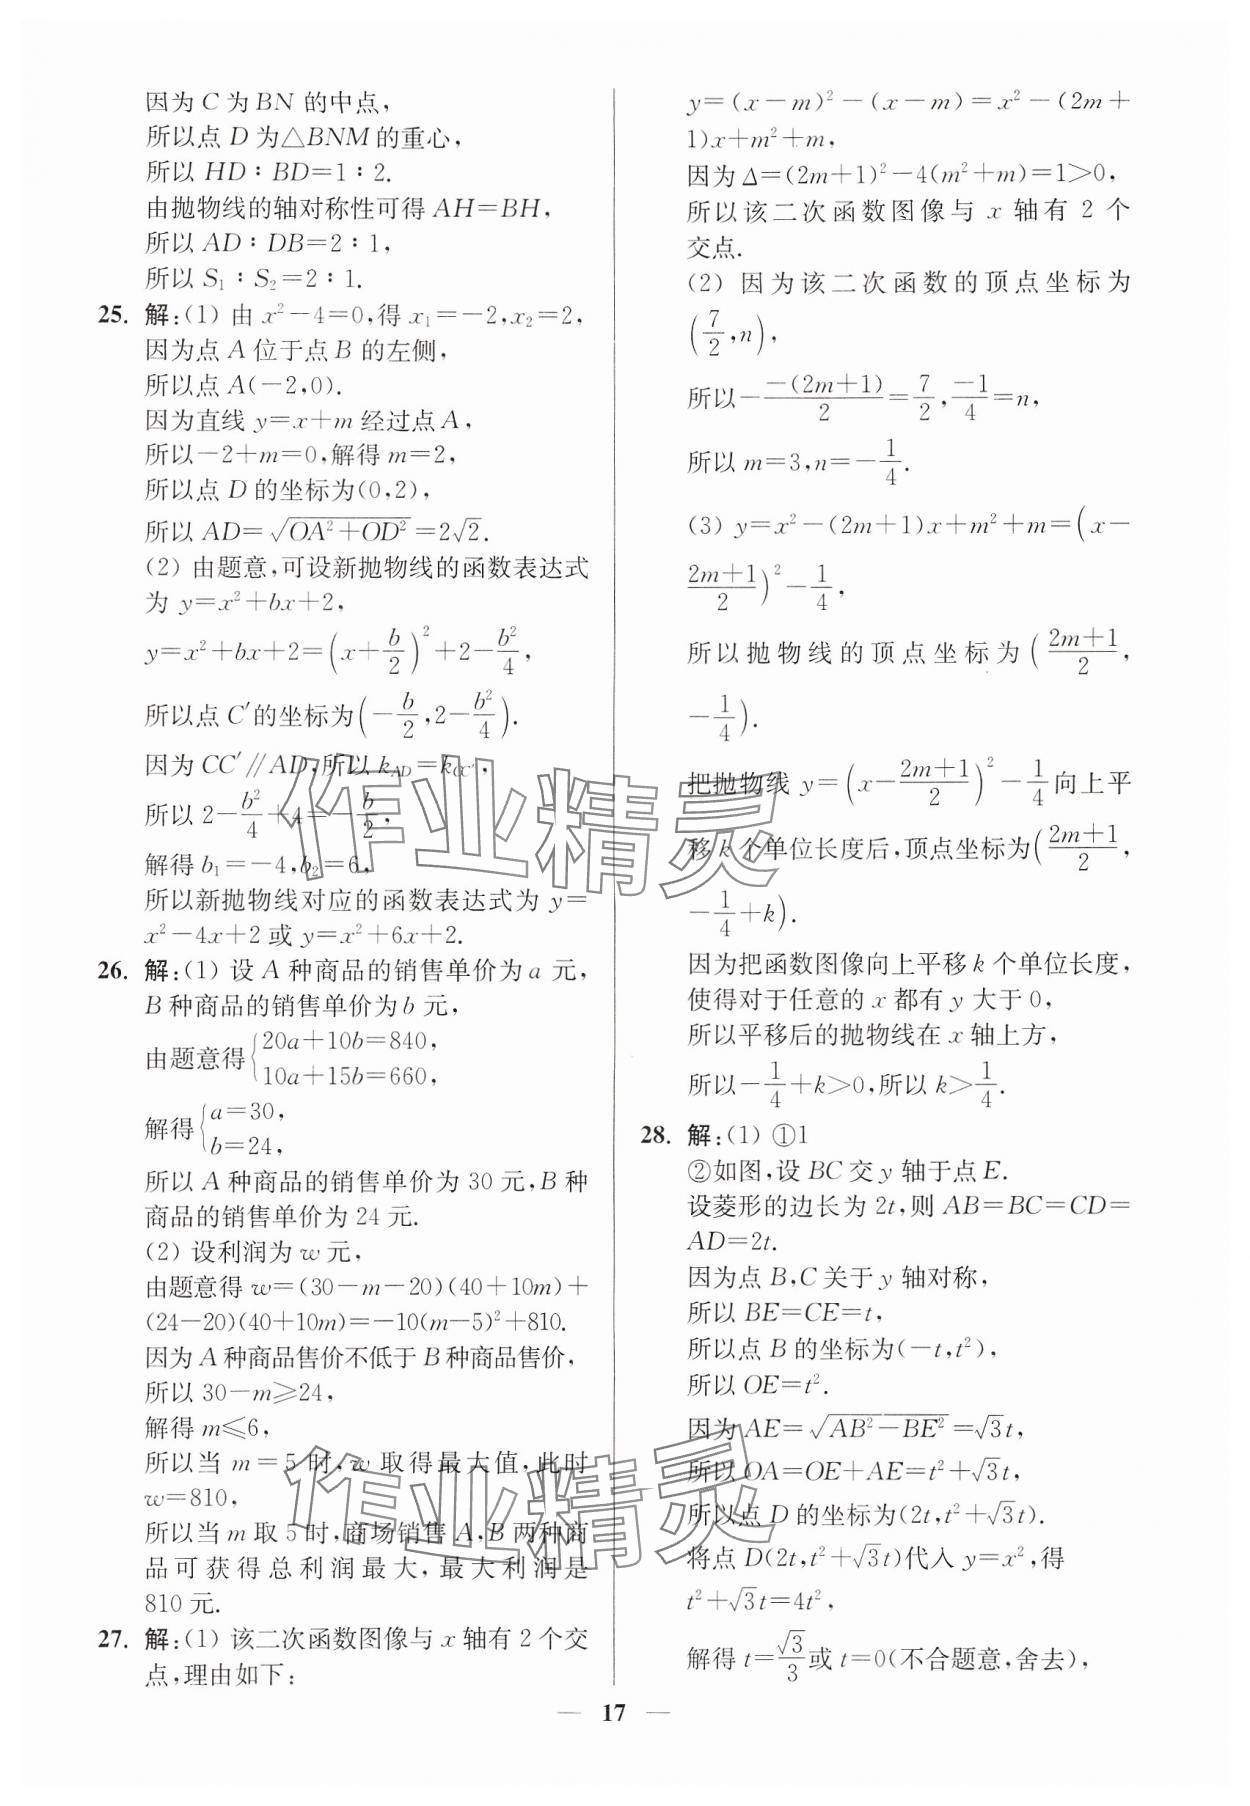 因为 C 为 BN 的中点，
所以点 D 为△BNM 的重心，
所以 HD∶BD=1∶2.
由抛物线的轴对称性可得 AH=BH，
所以 AD∶DB=2∶1，
所以 S₁∶S₂=2∶1.
25. 解：(1) 由 x²-4=0，得 x₁=-2，x₂=2，
因为点 A 位于点 B 的左侧，
所以点 A(-2，0).
因为直线 y=x+m 经过点 A，
所以-2+m=0，解得 m=2，
所以点 D 的坐标为(0，2)，
所以 AD=√(OA²+OD²)=2√2.
(2) 由题意，可设新抛物线的函数表达式
为 y=x²+bx+2，
y=x²+bx+2=(x+b/2)²+2-b²/4，
所以点 C′的坐标为(-b/2，2-b²/4).
因为 CC′∥AD，所以 k_AD=k_CC′，
所以 2-b²/4+4=-b/2，
解得 b₁=-4，b₂=6，
所以新抛物线对应的函数表达式为 y=
x²-4x+2 或 y=x²+6x+2.
26. 解：(1) 设 A 种商品的销售单价为 a 元，
B 种商品的销售单价为 b 元，
由题意得{20a+10b=840，
10a+15b=660，
解得{a=30，
b=24，
所以 A 种商品的销售单价为 30 元，B 种
商品的销售单价为 24 元.
(2) 设利润为 w 元，
由题意得 w=(30-m-20)(40+10m)+
(24-20)(40+10m)=-10(m-5)²+810.
因为 A 种商品售价不低于 B 种商品售价，
所以 30-m≥24，
解得 m≤6，
所以当 m=5 时，w 取得最大值，此时
w=810，
所以当 m 取 5 时，商场销售 A，B 两种商
品可获得总利润最大，最大利润是
810 元.
27. 解：(1) 该二次函数图像与 x 轴有 2 个交
点，理由如下：
y=(x-m)²-(x-m)=x²-(2m+
1)x+m²+m，
因为 Δ=(2m+1)²-4(m²+m)=1>0，
所以该二次函数图像与 x 轴有 2 个
交点.
(2) 因为该二次函数的顶点坐标为
(7/2，n)，
所以-(-(2m+1))/2=7/2，-1/4=n，
所以 m=3，n=-1/4.
(3) y=x²-(2m+1)x+m²+m=(x-
(2m+1)/2)²-1/4，
所以抛物线的顶点坐标为((2m+1)/2，
-1/4).
把抛物线 y=(x-(2m+1)/2)²-1/4向上平
移 k 个单位长度后，顶点坐标为((2m+1)/2，
-1/4+k).
因为把函数图像向上平移 k 个单位长度，
使得对于任意的 x 都有 y 大于 0，
所以平移后的抛物线在 x 轴上方，
所以-1/4+k>0，所以 k>1/4.
28. 解：(1) ①1
②如图，设 BC 交 y 轴于点 E.
设菱形的边长为 2t，则 AB=BC=CD=
AD=2t.
因为点 B，C 关于 y 轴对称，
所以 BE=CE=t，
所以点 B 的坐标为(-t，t²)，
所以 OE=t².
因为 AE=√(AB²-BE²)=√3t，
所以 OA=OE+AE=t²+√3t，
所以点 D 的坐标为(2t，t²+√3t).
将点 D(2t，t²+√3t)代入 y=x²，得
t²+√3t=4t²，
解得 t=√3/3或 t=0(不合题意，舍去)，
— 17 —
作业精灵
作业精灵